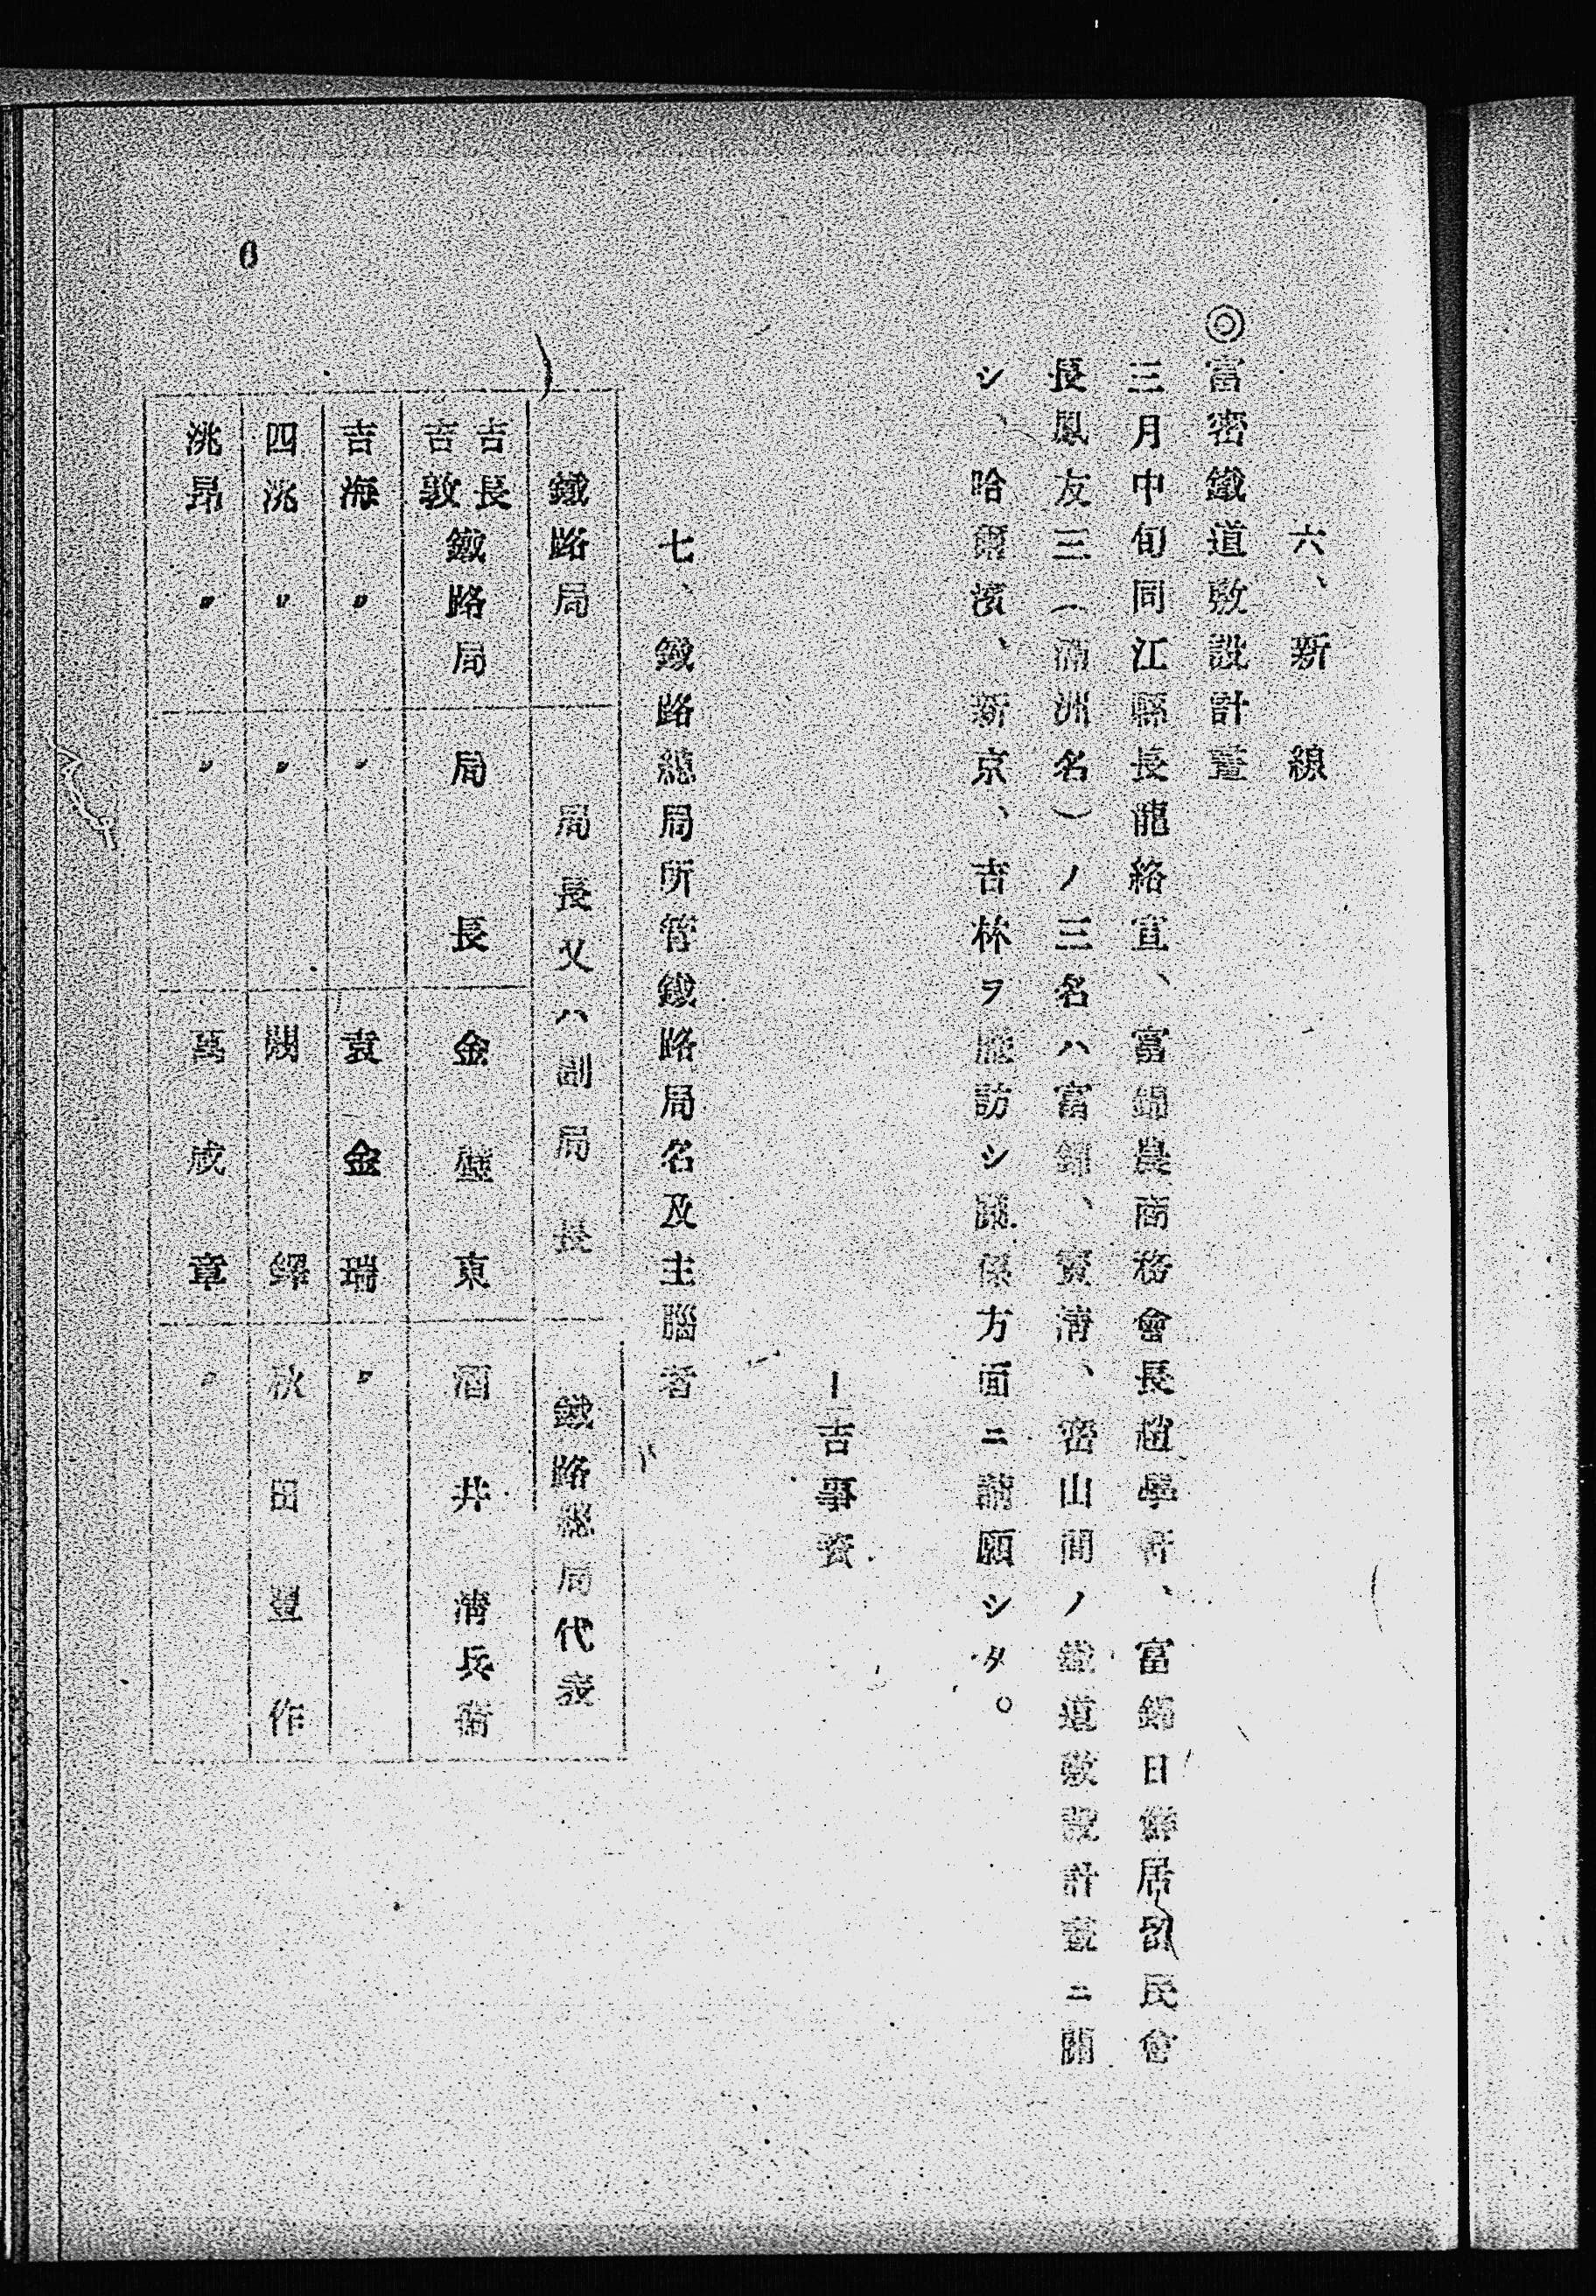 六、新線
◎富密鐵道敷設計畫
三月中旬同江縣長龍絡宣、富錦農商務會長趙學 、富錦日鮮居留民會
長鳳友三(滿洲名)ノ三名ハ富錦、寶淸、密山間ノ鐵道敷設計畫ニ關
シ、哈爾濱、新京、吉林ヲ歷訪シ關係方面ニ請願シタ。
ー吉事資
七、鐵路總局所管鐵路局名及主腦者
鐵路局 局長又ハ副局長 鐵路總局代表
吉長吉敦鐵路局 局長 金璧東 酒井淸兵衞
吉海〃 〃 袁金瑞 〃
四洮〃 〃 闞鐸 秋田豊作
洮昂〃 〃 萬咸章 〃
6